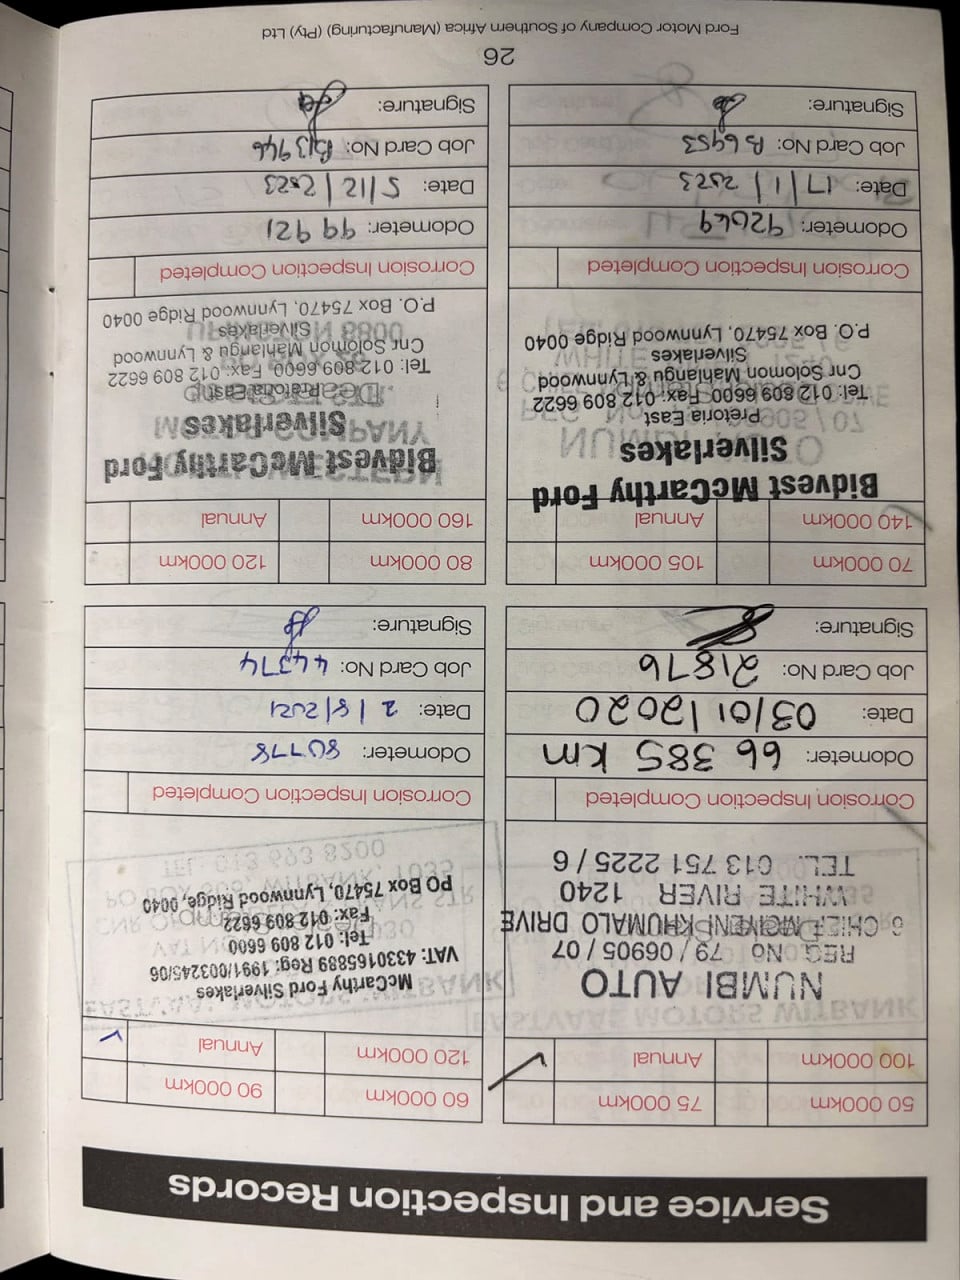 Service and Inspection Records
50 000km 75 000km
100 000km Annual ✓
NUMBI AUTO
REG. No 79 / 06905 / 07
6 CHIEF MGIYENI KHUMALO DRIVE
WHITE RIVER 1240
TEL: 013 751 2225 / 6
Corrosion Inspection Completed
Odometer: 66 385 km
Date: 03/01/2020
Job Card No: 21876
Signature:
60 000km 90 000km
120 000km Annual ✓
McCarthy Ford Silverlakes
VAT: 4330165889 Reg: 1991/00324​5/06
Tel: 012 809 6600
Fax: 012 809 6622
PO Box 75470, Lynnwood, Ridge, 0040
Corrosion Inspection Completed
Odometer: 80778
Date: 2/8/2021
Job Card No: 44374
Signature:
70 000km 105 000km
140 000km Annual
Bidvest McCarthy Ford
Silverlakes
Pretoria East
Tel: 012 809 6600 Fax: 012 809 6622
Cnr Solomon Mahlangu & Lynnwood
Silverlakes
P.O. Box 75470, Lynnwood Ridge 0040
Corrosion Inspection Completed
Odometer: 92649
Date: 17/1/2023
Job Card No: B6953
Signature:
80 000km 120 000km
160 000km Annual
Bidvest McCarthy Ford
Silverlakes
Pretoria East
Tel: 012 809 6600 Fax: 012 809 6622
Cnr Solomon Mahlangu & Lynnwood
Silverlakes
P.O. Box 75470, Lynnwood Ridge 0040
Corrosion Inspection Completed
Odometer: 99 921
Date: 5/12/2023
Job Card No: B13946
Signature:
26
Ford Motor Company of Southern Africa (Manufacturing) (Pty) Ltd